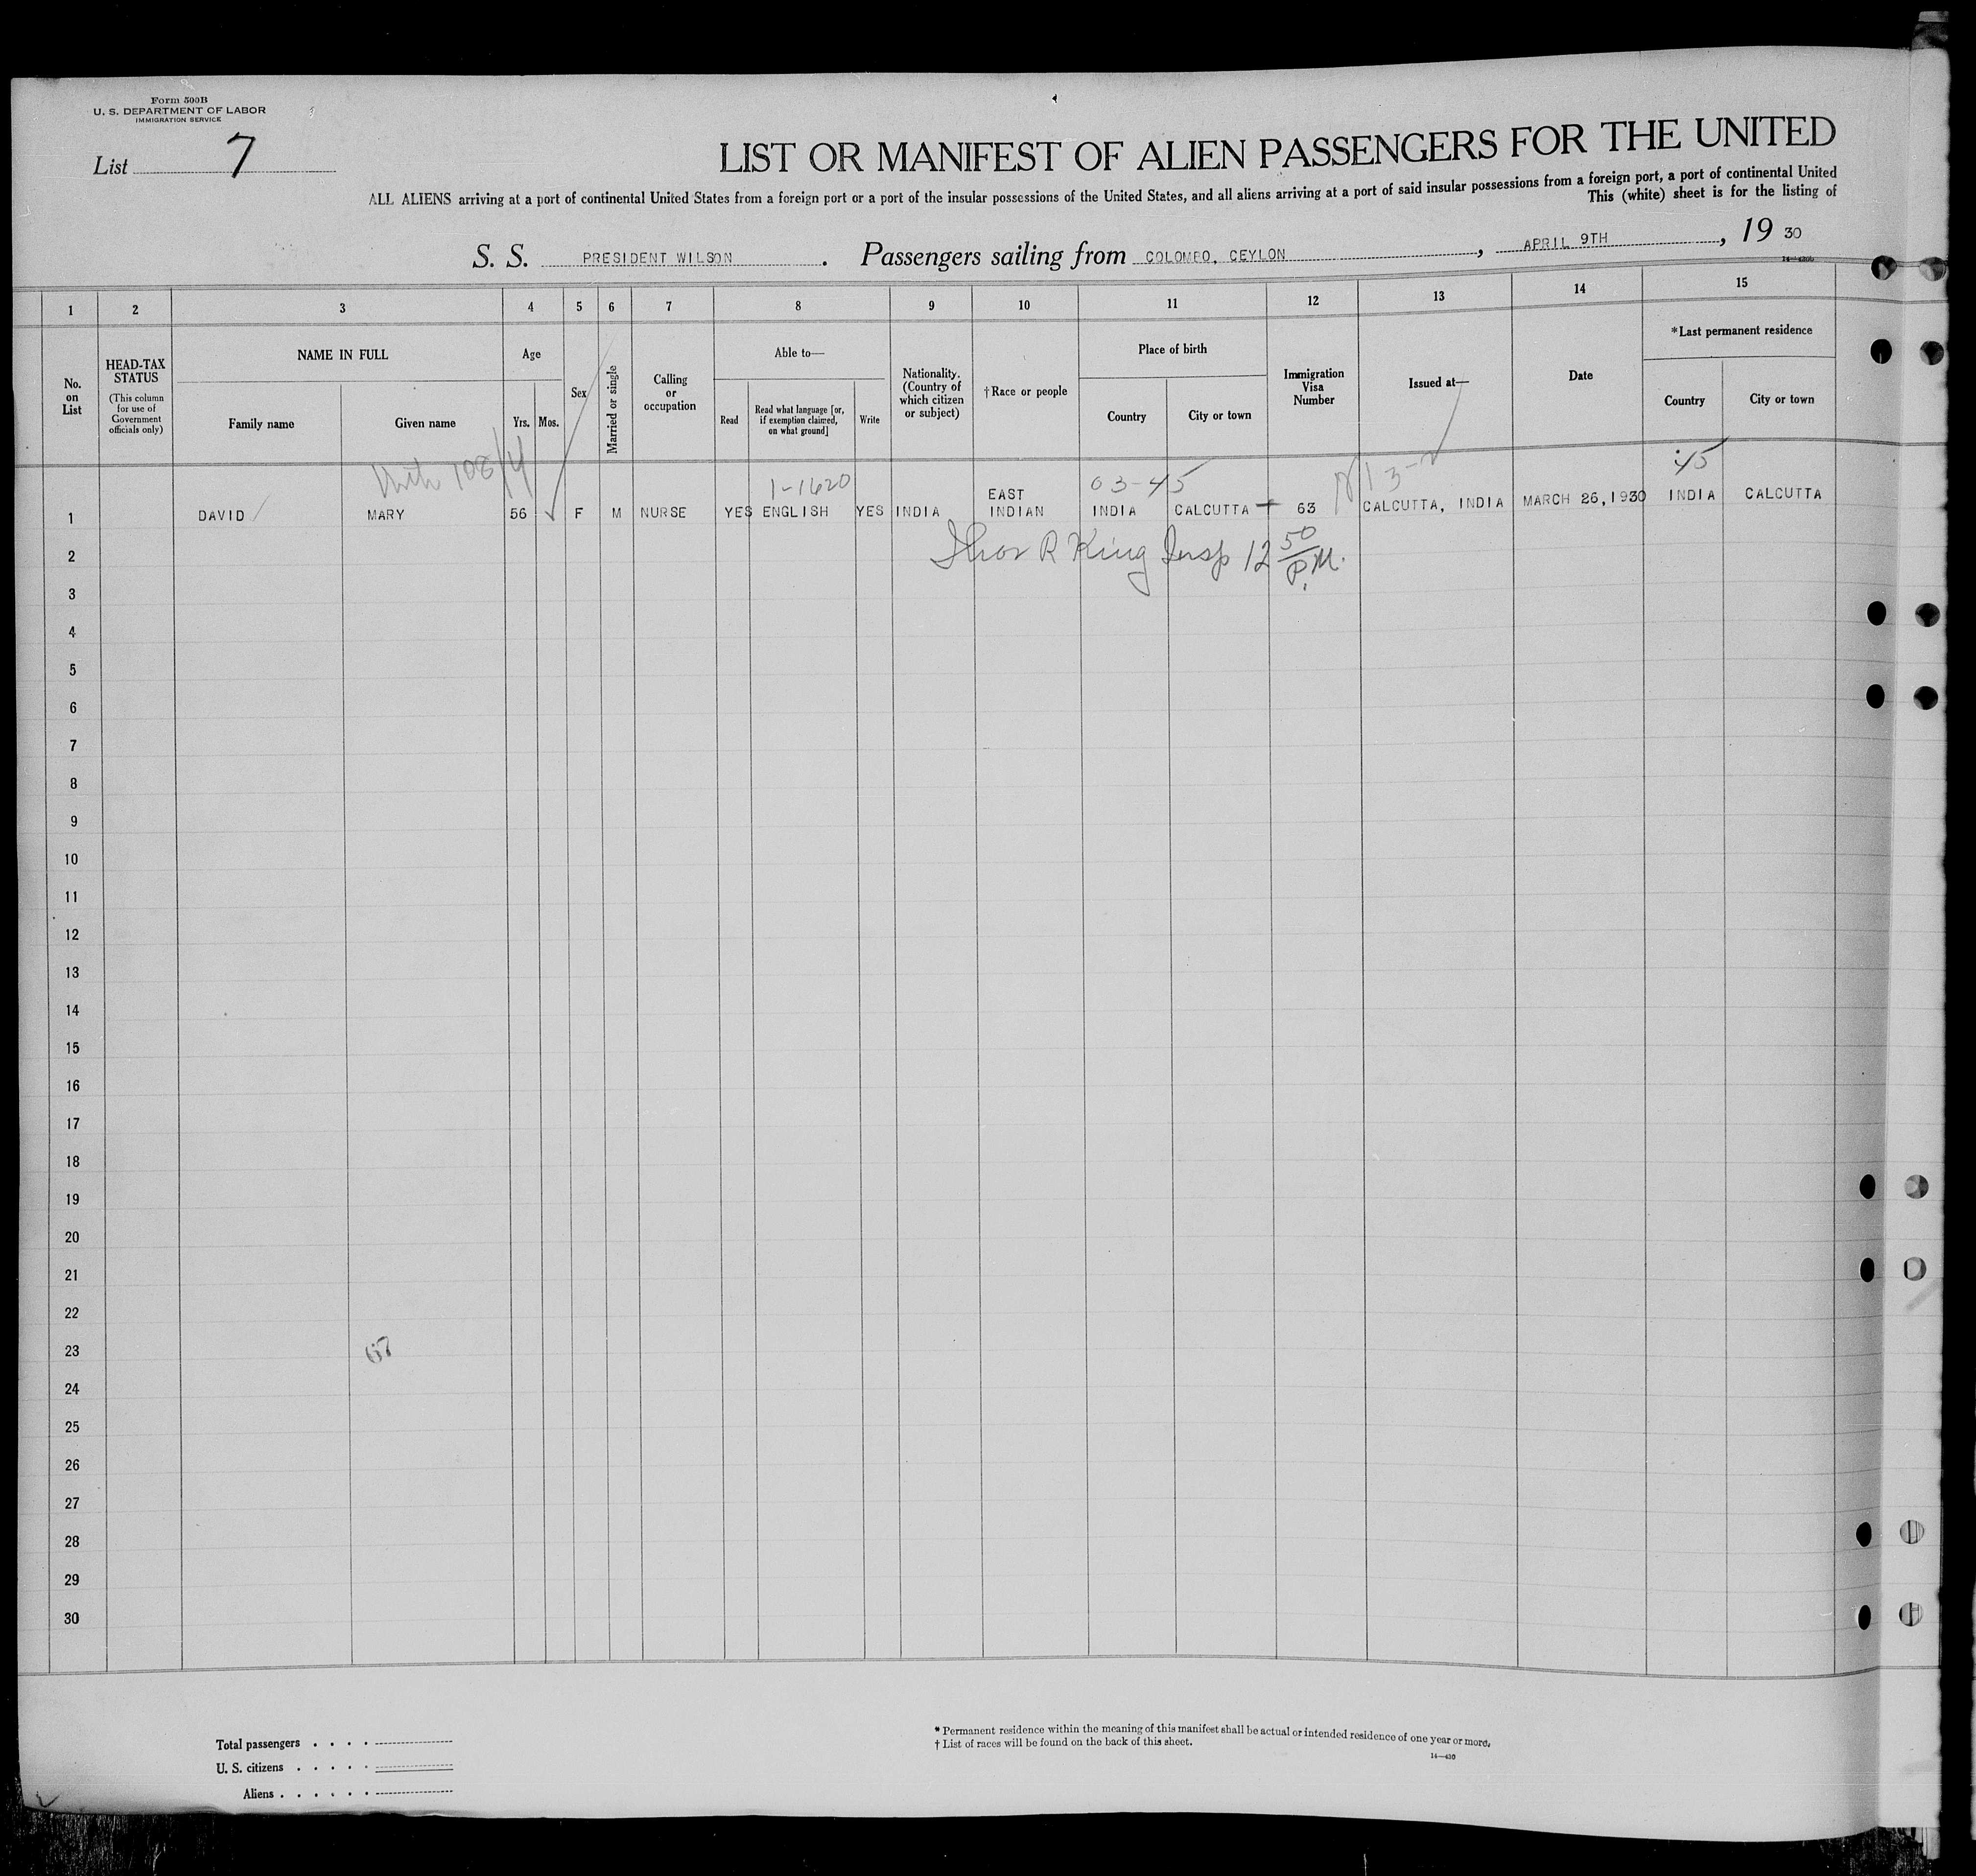 Form 500B
U. S. DEPARTMENT OF LABOR
IMMIGRATION SERVICE
List 7
LIST OR MANIFEST OF ALIEN PASSENGERS FOR THE UNITED
ALL ALIENS arriving at a port of continental United States from a foreign port or a port of the insular possessions of the United States, and all aliens arriving at a port of said insular possessions from a foreign port, a port of continental United
This (white) sheet is for the listing of
S. S. PRESIDENT WILSON. Passengers sailing from COLOMBO, CEYLON, APRIL 9TH, 19 30
1 2 3 4 5 6 7 8 9 10 11 12 13 14 15
No. on List
HEAD-TAX STATUS
(This column for use of Government officials only)
NAME IN FULL
Family name
Given name
Age
Yrs.
Mos.
Sex
Married or single
Calling or occupation
Able to—
Read
Read what language [or, if exemption claimed, on what ground]
Write
Nationality. (Country of which citizen or subject)
†Race or people
Place of birth
Country
City or town
Immigration Visa Number
Issued at—
Date
*Last permanent residence
Country
City or town
1-1620
03-45
45
1 DAVID MARY 56 F M NURSE YES ENGLISH YES INDIA EAST INDIAN INDIA CALCUTTA 63 CALCUTTA, INDIA MARCH 26,1930 INDIA CALCUTTA
R King Insp 12 50 P.M.
2
3
4
5
6
7
8
9
10
11
12
13
14
15
16
17
18
19
20
21
22
23
67
24
25
26
27
28
29
30
Total passengers . . . .
U. S. citizens . . . . .
Aliens . . . . . .
* Permanent residence within the meaning of this manifest shall be actual or intended residence of one year or more.
† List of races will be found on the back of this sheet.
14—430